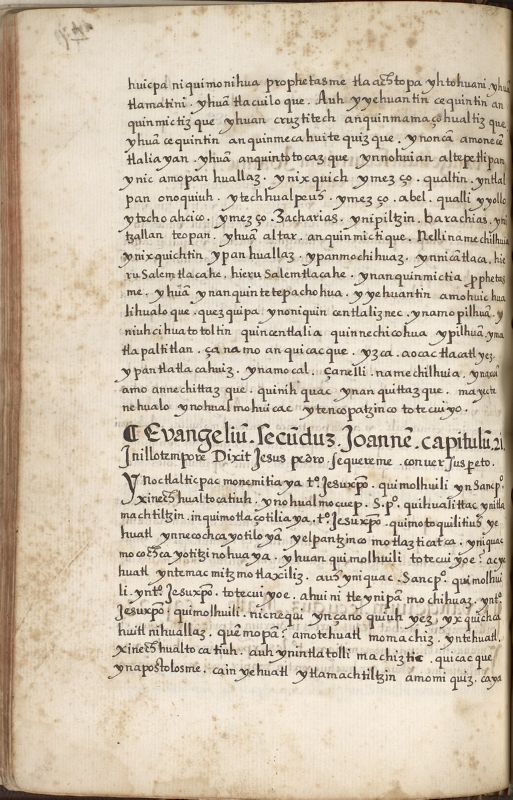 huicpa ni quimonihua prophetasme tlaachtopa yhtohuani. yhuā
tlamatini. yhuā tlacuilo que. Auh y yehuantin cequintin an
quinmictiz que yhuan cruztitech anquinmamaçohualtiz que,
yhuā cequintin anquinmecahuitequiz que. yn oncā amonecē
tlaliayan. yhuā anquintotocaz que ynnohuian altepetlipan
ynic amopan huallaz. ynixquich ymezço. qualtin. yntlal
pan onoquiuh. ytechhualpeus. ymezço. abel. qualli yyollo
ytech oahcico. ymezço. Zacharias. ynipiltzin. barachias. yni
tzallan teopan. yhuā altar. anquinmictique. Nelli namechilhuia
ynixquichtin ypan huallaz. ypanmochihuaz. ynnicā tlaca. hie
rusalem tlacahe. hierusalem tlacahe. ynanquinmictia prophetas
me. yhuā ynanquintetepachohua. yyehuantin amohuic hua
lihualo que. quezquipa ynoniquin centlaliznec. ynamopilhuā. y
niuh cihuatotoltin quincentlalia quinnechicohua ypilhuā. yma
tlapaltitlan. ça namo anquicacque. yzca. aocac tlacatl yez
ypan tlatlacahuiz. ynamocal. çanelli. namechilhuia. ynaxcā
amo annechittaz que. quinihquac ynanquittazque. ma yecte
nehualo ynohualmohuicac ytencopatzinco totecuiyo.
¶ Evangeliū. secūduz. Joannē. capitulū. 21.
In illo tempore Dixit Jesus pedro. sequere me. conversus peto.
Ynoc tlalticpac monemitiaya to. Jesuxpō. quimolhuili yn Sanc po.
xinechhualtocatiuh. ynohualmocuep. S. po. quihualittac ynitla
machtiltzin. inquimotlaçotilia ya. to. Jesuxpō. quimotoquilitius ye
huatl ynnecochcayotiloyā yelpantzinco motlaztica tca. yniquac
mocochcayotitzinohuaya. yhuan quimolhuili totecuiyoe. ac ye
huatl yntemac mitzmotlaxiliz. auh yniquac. Sanc po. quimolhui
li. ynto. Jesuxpō. totecuiyoe. ahuini tle ynipā mochihuaz. ynto.
Jesuxpō. quimolhuili. nicnequi ynçano quiuh yez. yxquichca
huitl nihuallaz. quēmopā? amo tehuatl momachiz. yntehuatl.
xinechhualtocatiuh. auh ynin tlatolli machiztic. quicacque
ynapostolosme. ca in yehuatl ytlamachtiltzin amo miquiz. caya